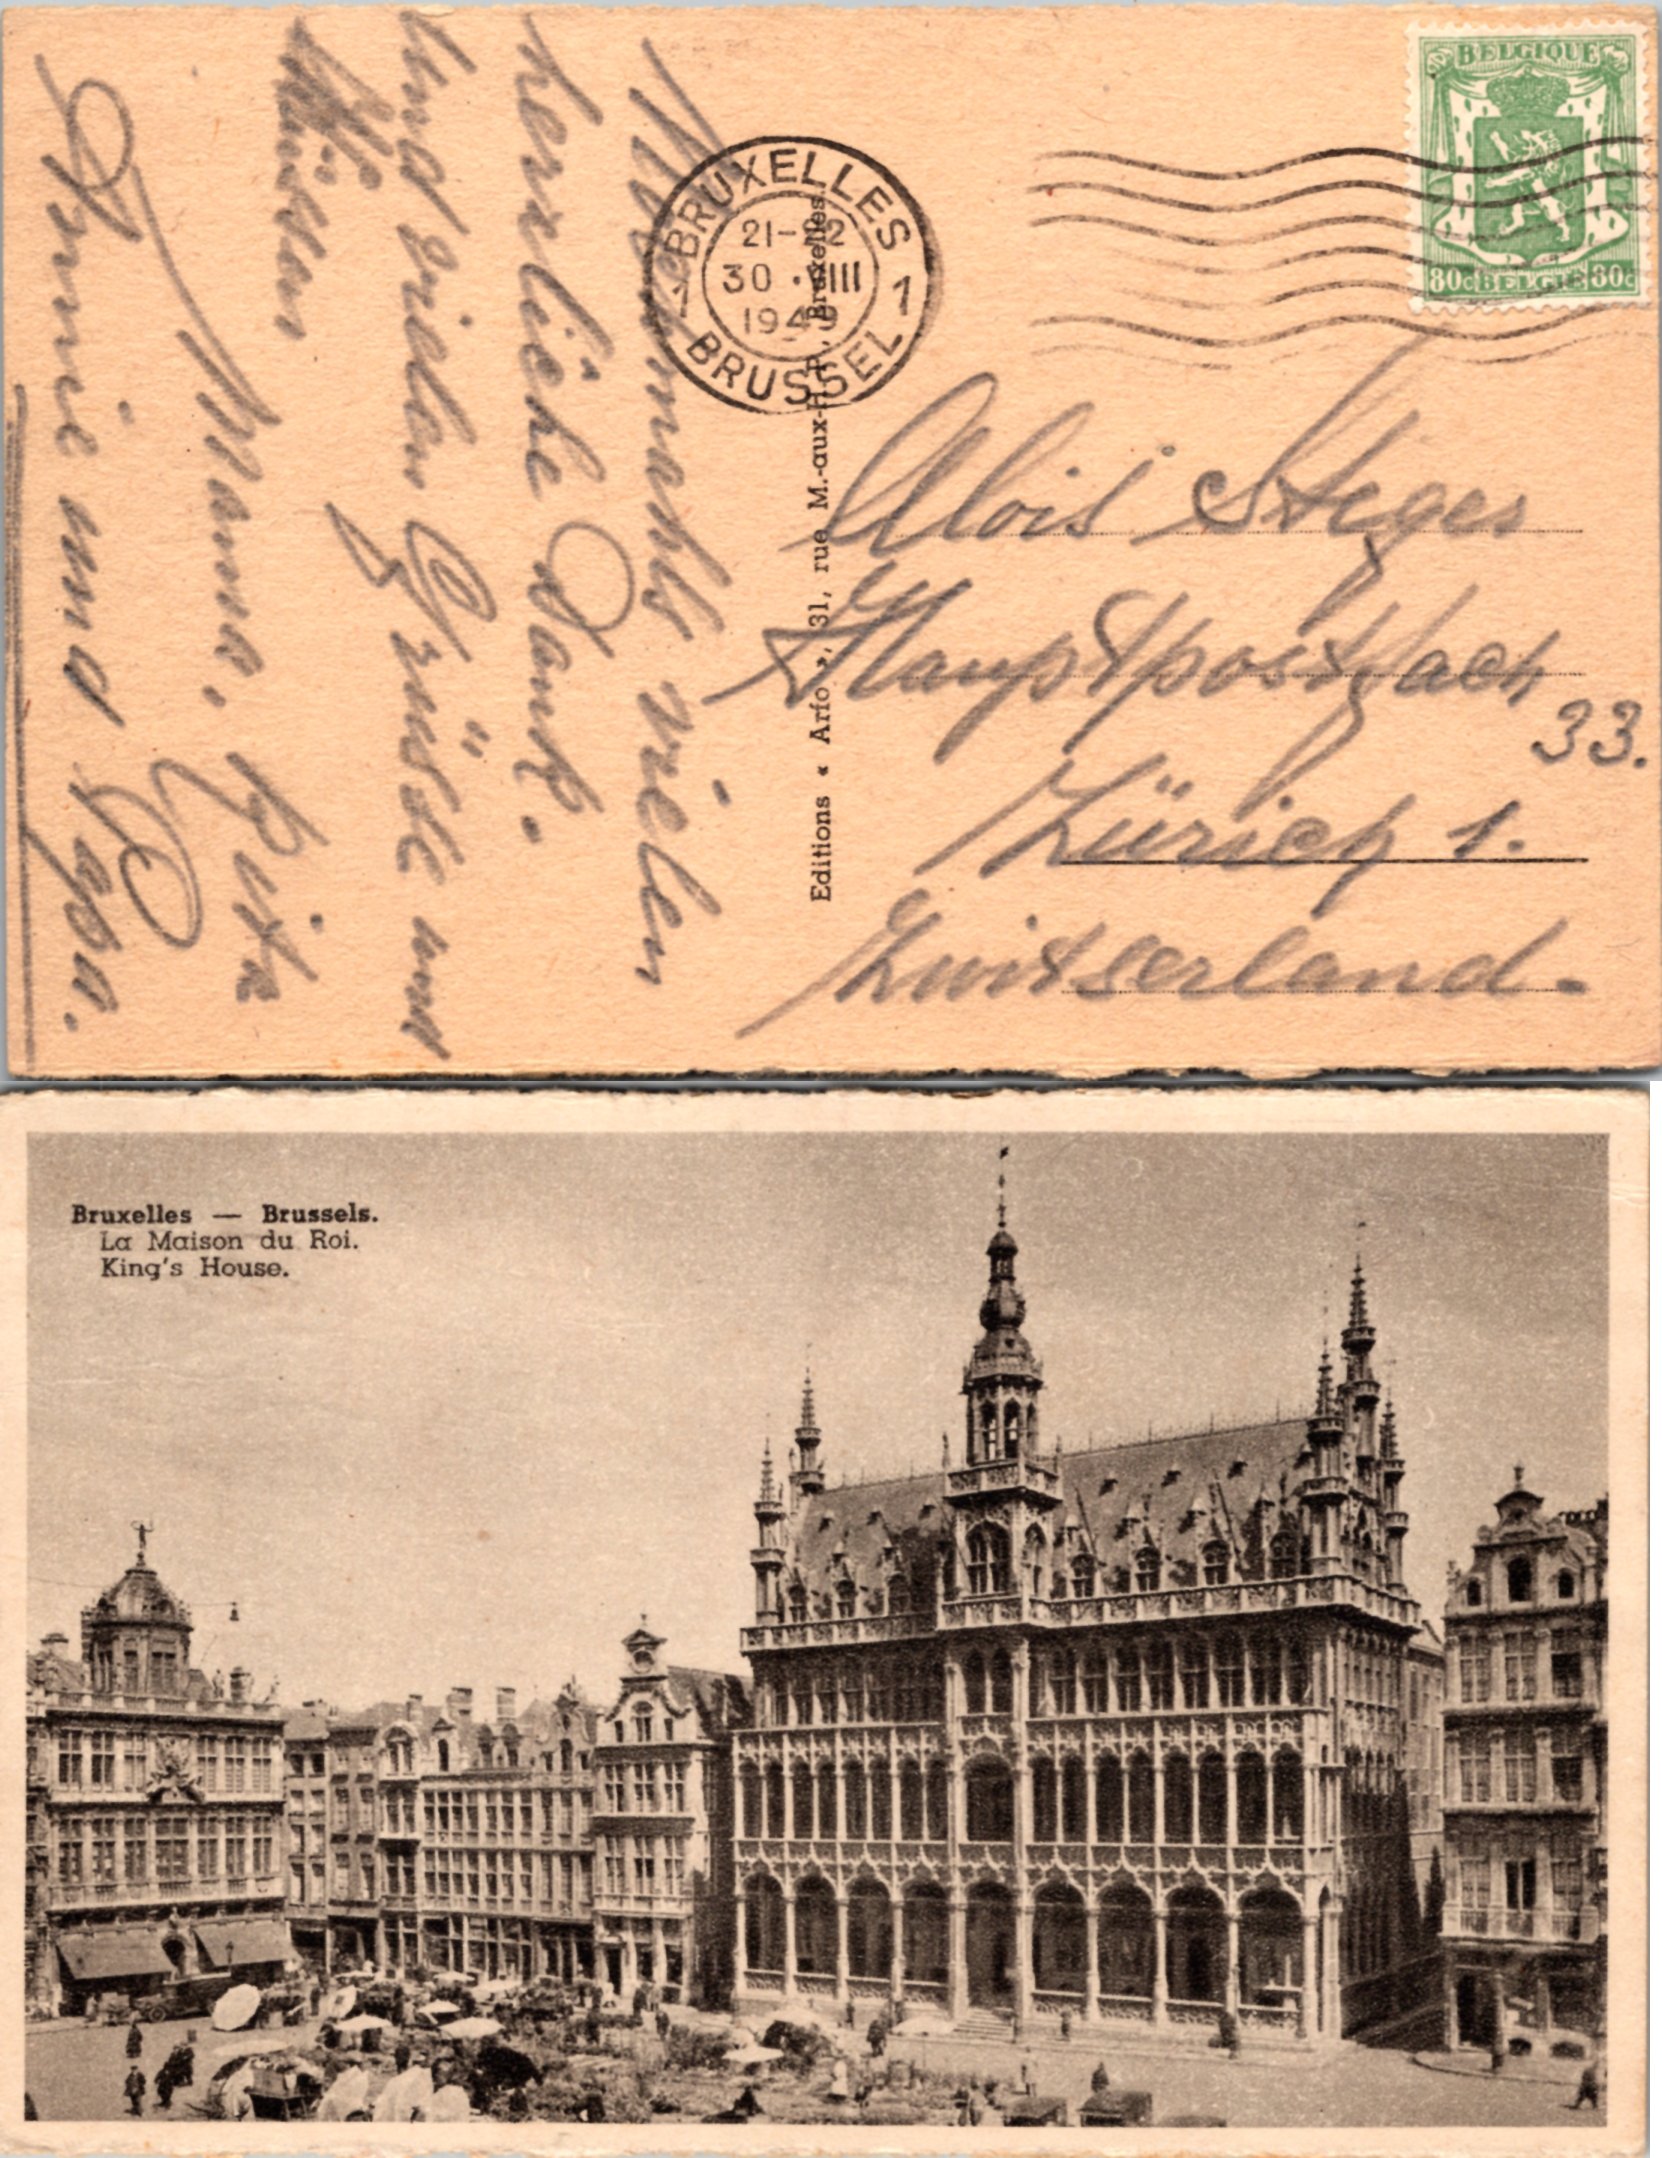 Nochmals vielen
herzliche Dank.
und vielen Grüsse und
Küssen
Mama, Rita
Annie und Papa.
Editions « Arfo », 31, rue M.-aux-H.-P., Bruxelles.
BRUXELLES
21-22
30
III
1
1
BRUSSEL
BELGIQUE
80c BELGIE 80c
Alois Steger
Hauptpostfach
33.
Zürich 1.
Zwitserland.
Bruxelles — Brussels.
La Maison du Roi.
King's House.